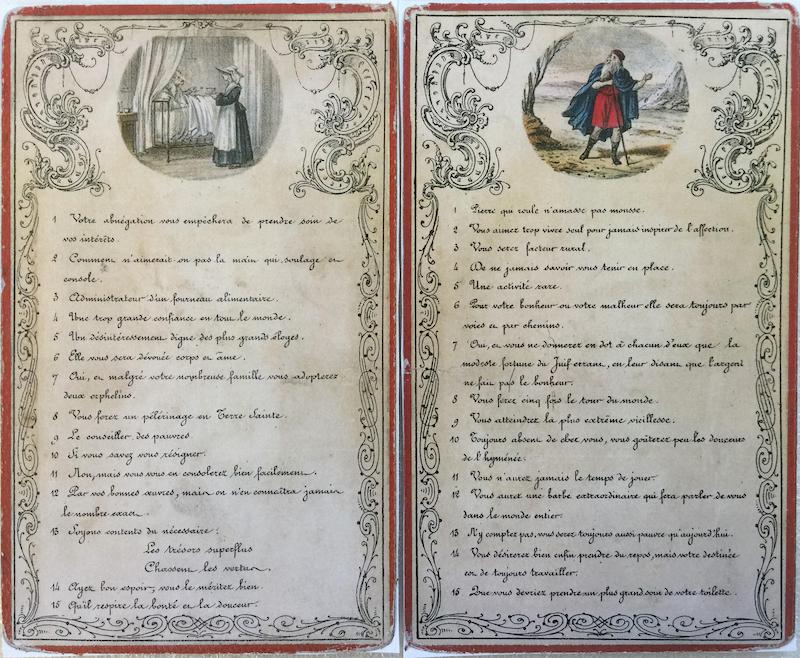 1 Votre abnégation vous empêchera de prendre soin de
vos intérêts.
2 Comment n'aimerait-on pas la main qui soulage et
console.
3 Administrateur d'un fourneau alimentaire.
4 Une trop grande confiance en tout le monde.
5 Un désintéressement digne des plus grands éloges.
6 Elle vous sera dévouée corps et âme.
7 Oui, et malgré votre nombreuse famille vous adopterez
deux orphelins.
8 Vous ferez un pèlerinage en Terre Sainte.
9 Le conseiller des pauvres.
10 Si vous savez vous résigner.
11 Non, mais vous vous en consolerez bien facilement.
12 Par vos bonnes œuvres, mais on n'en connaîtra jamais
le nombre exact.
13 Soyons contents du nécessaire :
Les trésors superflus
Chassent les vertus.
14 Ayez bon espoir, vous le méritez bien.
15 Qu'il respire la bonté et la douceur.
1 Pierre qui roule n'amasse pas mousse.
2 Vous aimez trop vivre seul pour jamais inspirer de l'affection.
3 Vous serez facteur rural.
4 De ne jamais savoir vous tenir en place.
5 Une activité rare.
6 Pour votre bonheur ou votre malheur elle sera toujours par
voies et par chemins.
7 Oui, et vous ne donnerez en dot à chacun d'eux que la
modeste fortune du Juif errant, en leur disant que l'argent
ne fait pas le bonheur.
8 Vous ferez cinq fois le tour du monde.
9 Vous atteindrez la plus extrême vieillesse.
10 Toujours absent de chez vous, vous goûterez peu les douceurs
de l'hyménée.
11 Vous n'aurez jamais le temps de jouer.
12 Vous aurez une barbe extraordinaire qui fera parler de vous
dans le monde entier.
13 N'y comptez pas, vous serez toujours aussi pauvre qu'aujourd'hui.
14 Vous désirerez bien enfin prendre du repos, mais votre destinée
est de toujours travailler.
15 Que vous devriez prendre un plus grand soin de votre toilette.